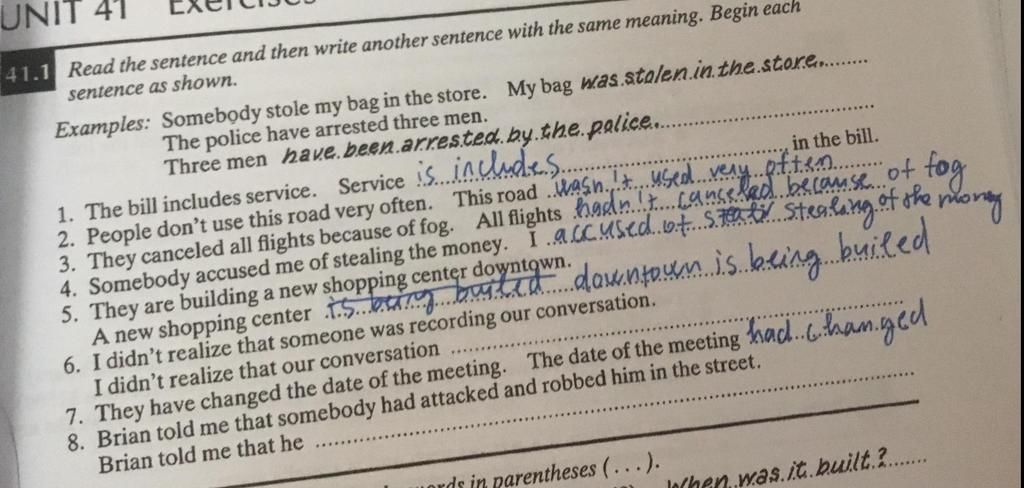 UNIT 41 Exercises
41.1 Read the sentence and then write another sentence with the same meaning. Begin each
sentence as shown.
Examples: Somebody stole my bag in the store. My bag was stolen in the store.
The police have arrested three men.
Three men have been arrested by the police.
1. The bill includes service. Service is includes in the bill.
2. People don't use this road very often. This road wasn't used very often
3. They canceled all flights because of fog. All flights hadn't canceled because of fog
4. Somebody accused me of stealing the money. I accused of stealing of the money
5. They are building a new shopping center downtown.
A new shopping center is being builed downtown is being builed
6. I didn't realize that someone was recording our conversation.
I didn't realize that our conversation
7. They have changed the date of the meeting. The date of the meeting had changed
8. Brian told me that somebody had attacked and robbed him in the street.
Brian told me that he
words in parentheses (...).
When was it built?